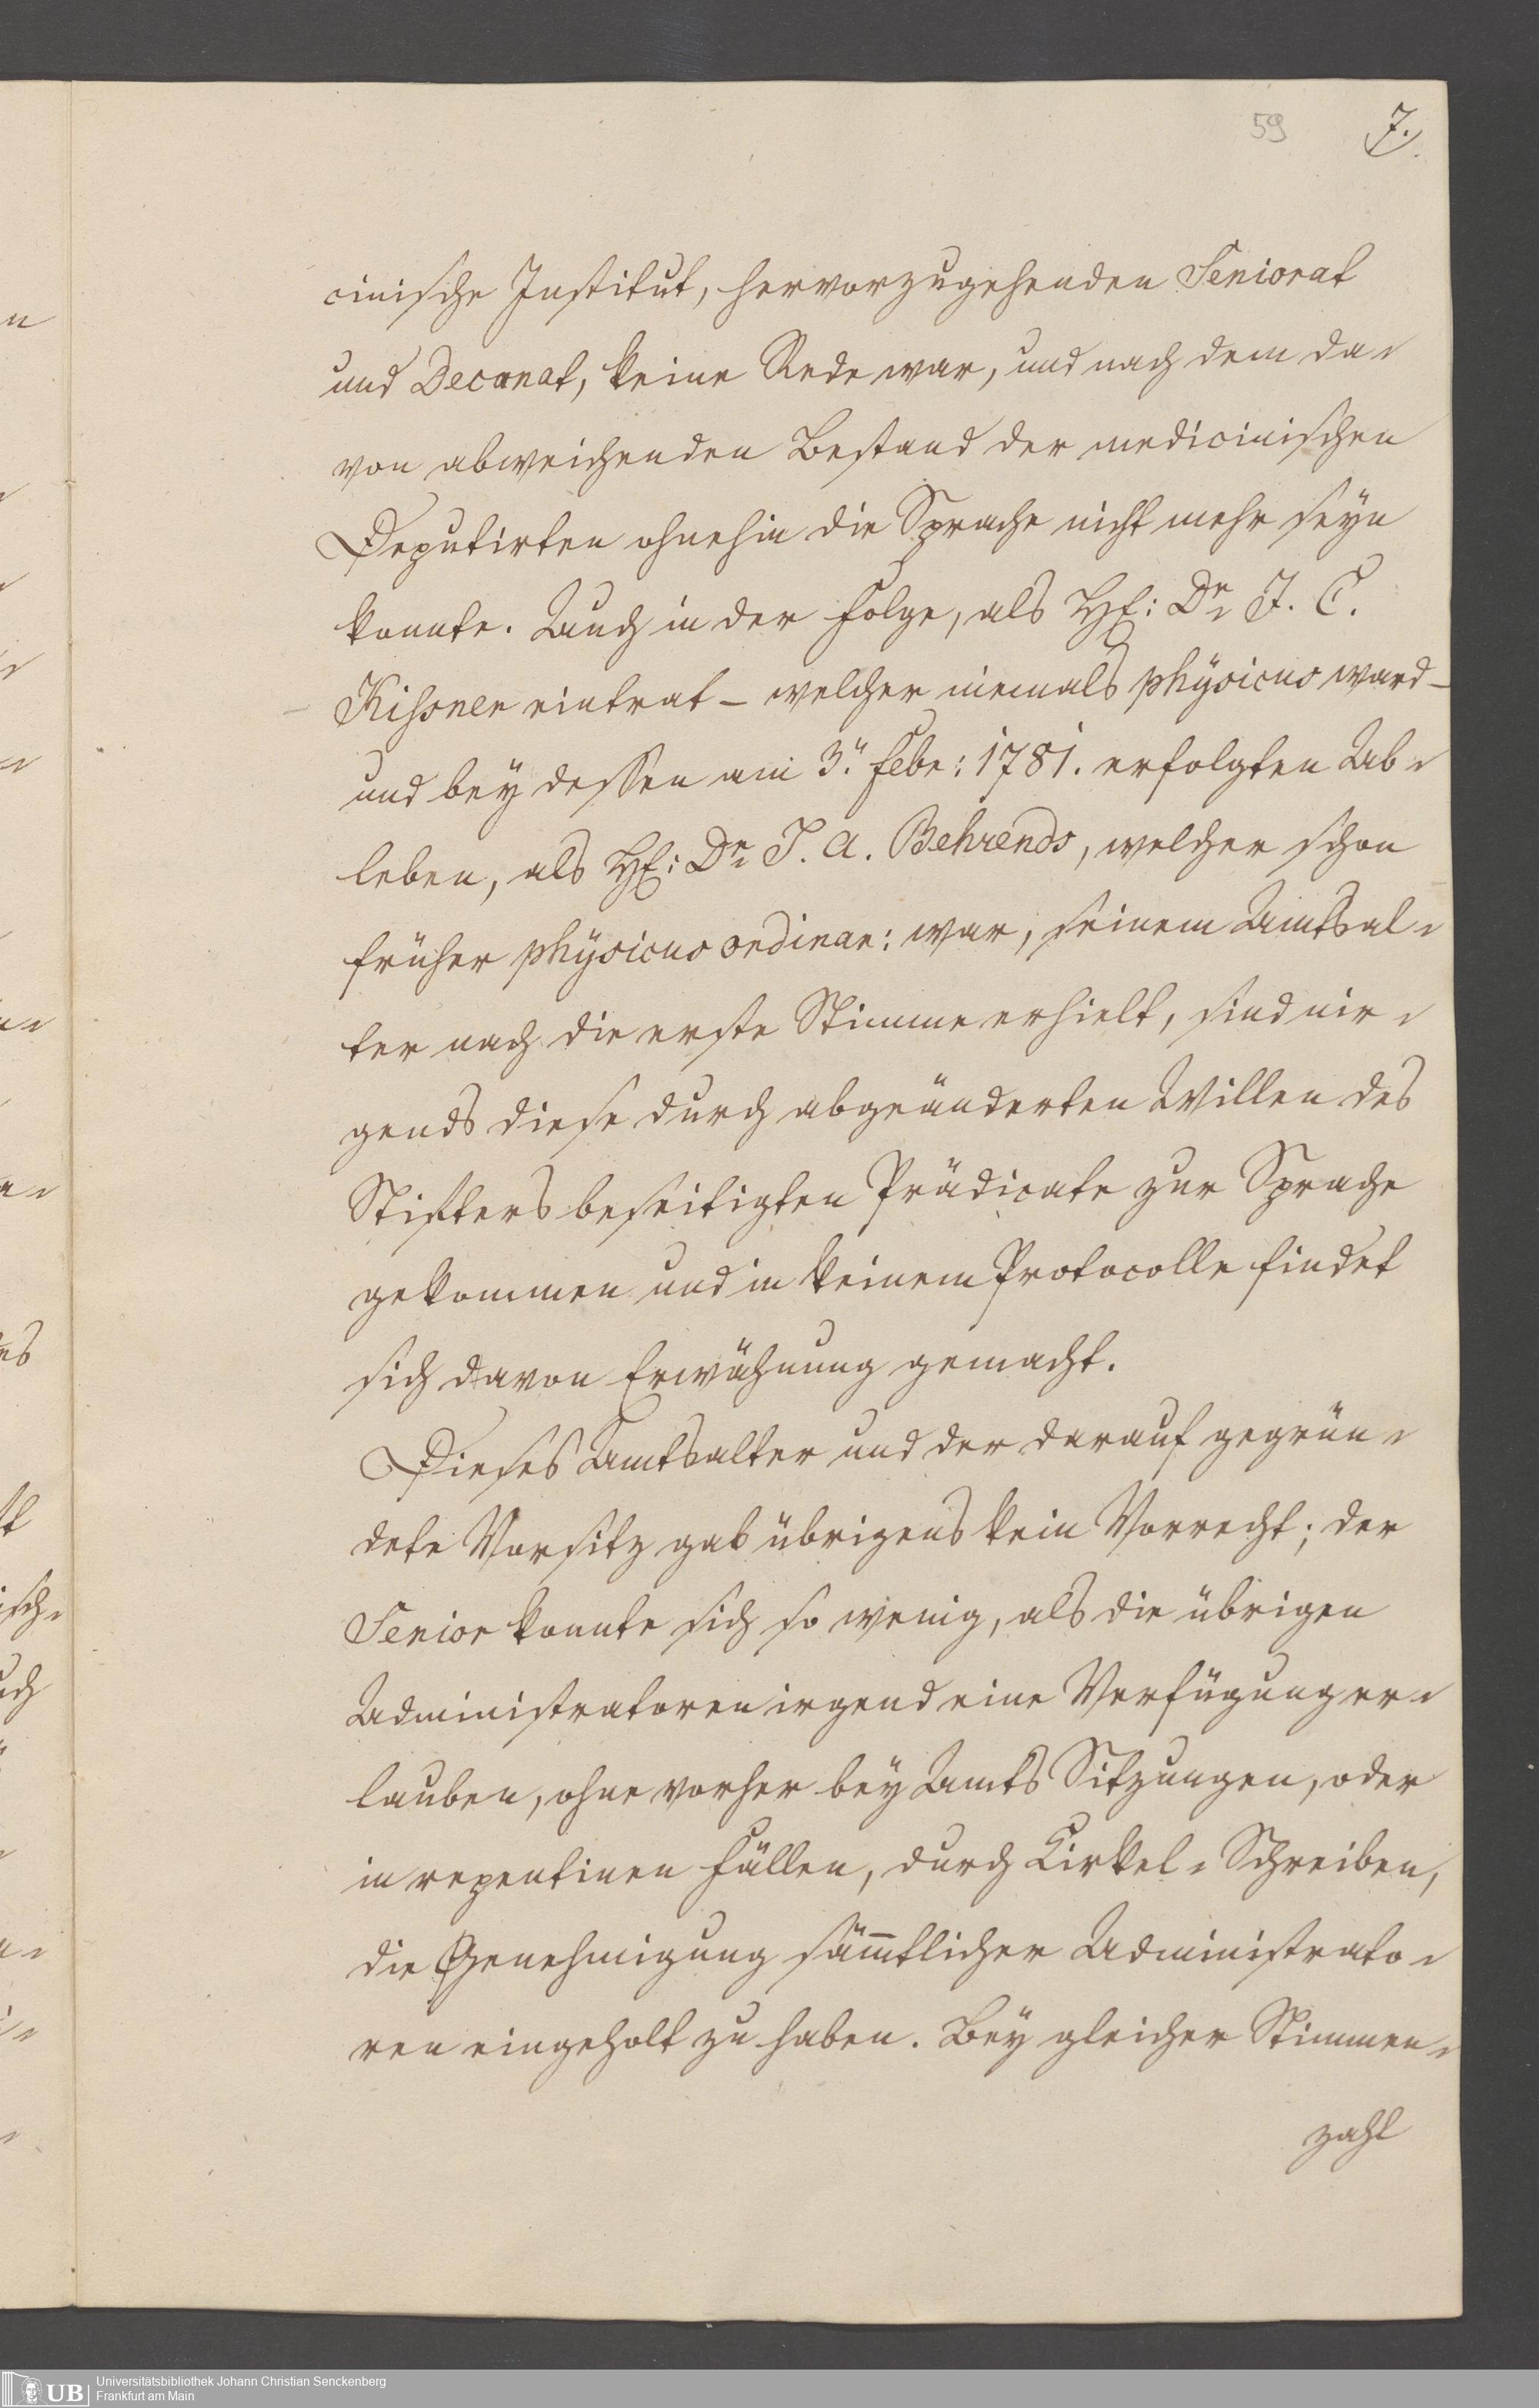 59 7.
cinische Institut, hervorzugehenden Seniorat
und Decanat, keine Rede war, und nach dem da-
von abweichenden Bestand der medicinischen
Deputirten ohnehin die Sprache nicht mehr seyn
konnte. Auch in der Folge, als H: Dr. J. C.
Kißner eintrat – welcher niemals physicus ward –
und bey dessen am 3n. Febr: 1781. erfolgten Ab-
leben, als H: Dr. J. A. Behrends, welcher schon
früher physicus ordinar: war, seinem Amtsal-
ter nach die erste Stimme erhielt, sind nir-
gends diese durch abgeänderten Willen des
Stifters beseitigten Prädicate zur Sprache
gekommen und in keinem Protocolle findet
sich davon Erwähnung gemacht.
Dieses Amtsalter und der darauf gegrün-
dete Vorsitz gab übrigens kein Vorrecht; der
Senior konnte sich so wenig, als die übrigen
Administratoren irgend eine Verfügung er-
lauben, ohne vorher bey Amts Sitzungen, oder
in repentinen Fällen, durch Zirkel-Schreiben,
die Genehmigung säm̅tlicher Administrato-
ren eingeholt zu haben. Bey gleicher Stimmen-
zahl
UB Universitätsbibliothek Johann Christian Senckenberg
Frankfurt am Main